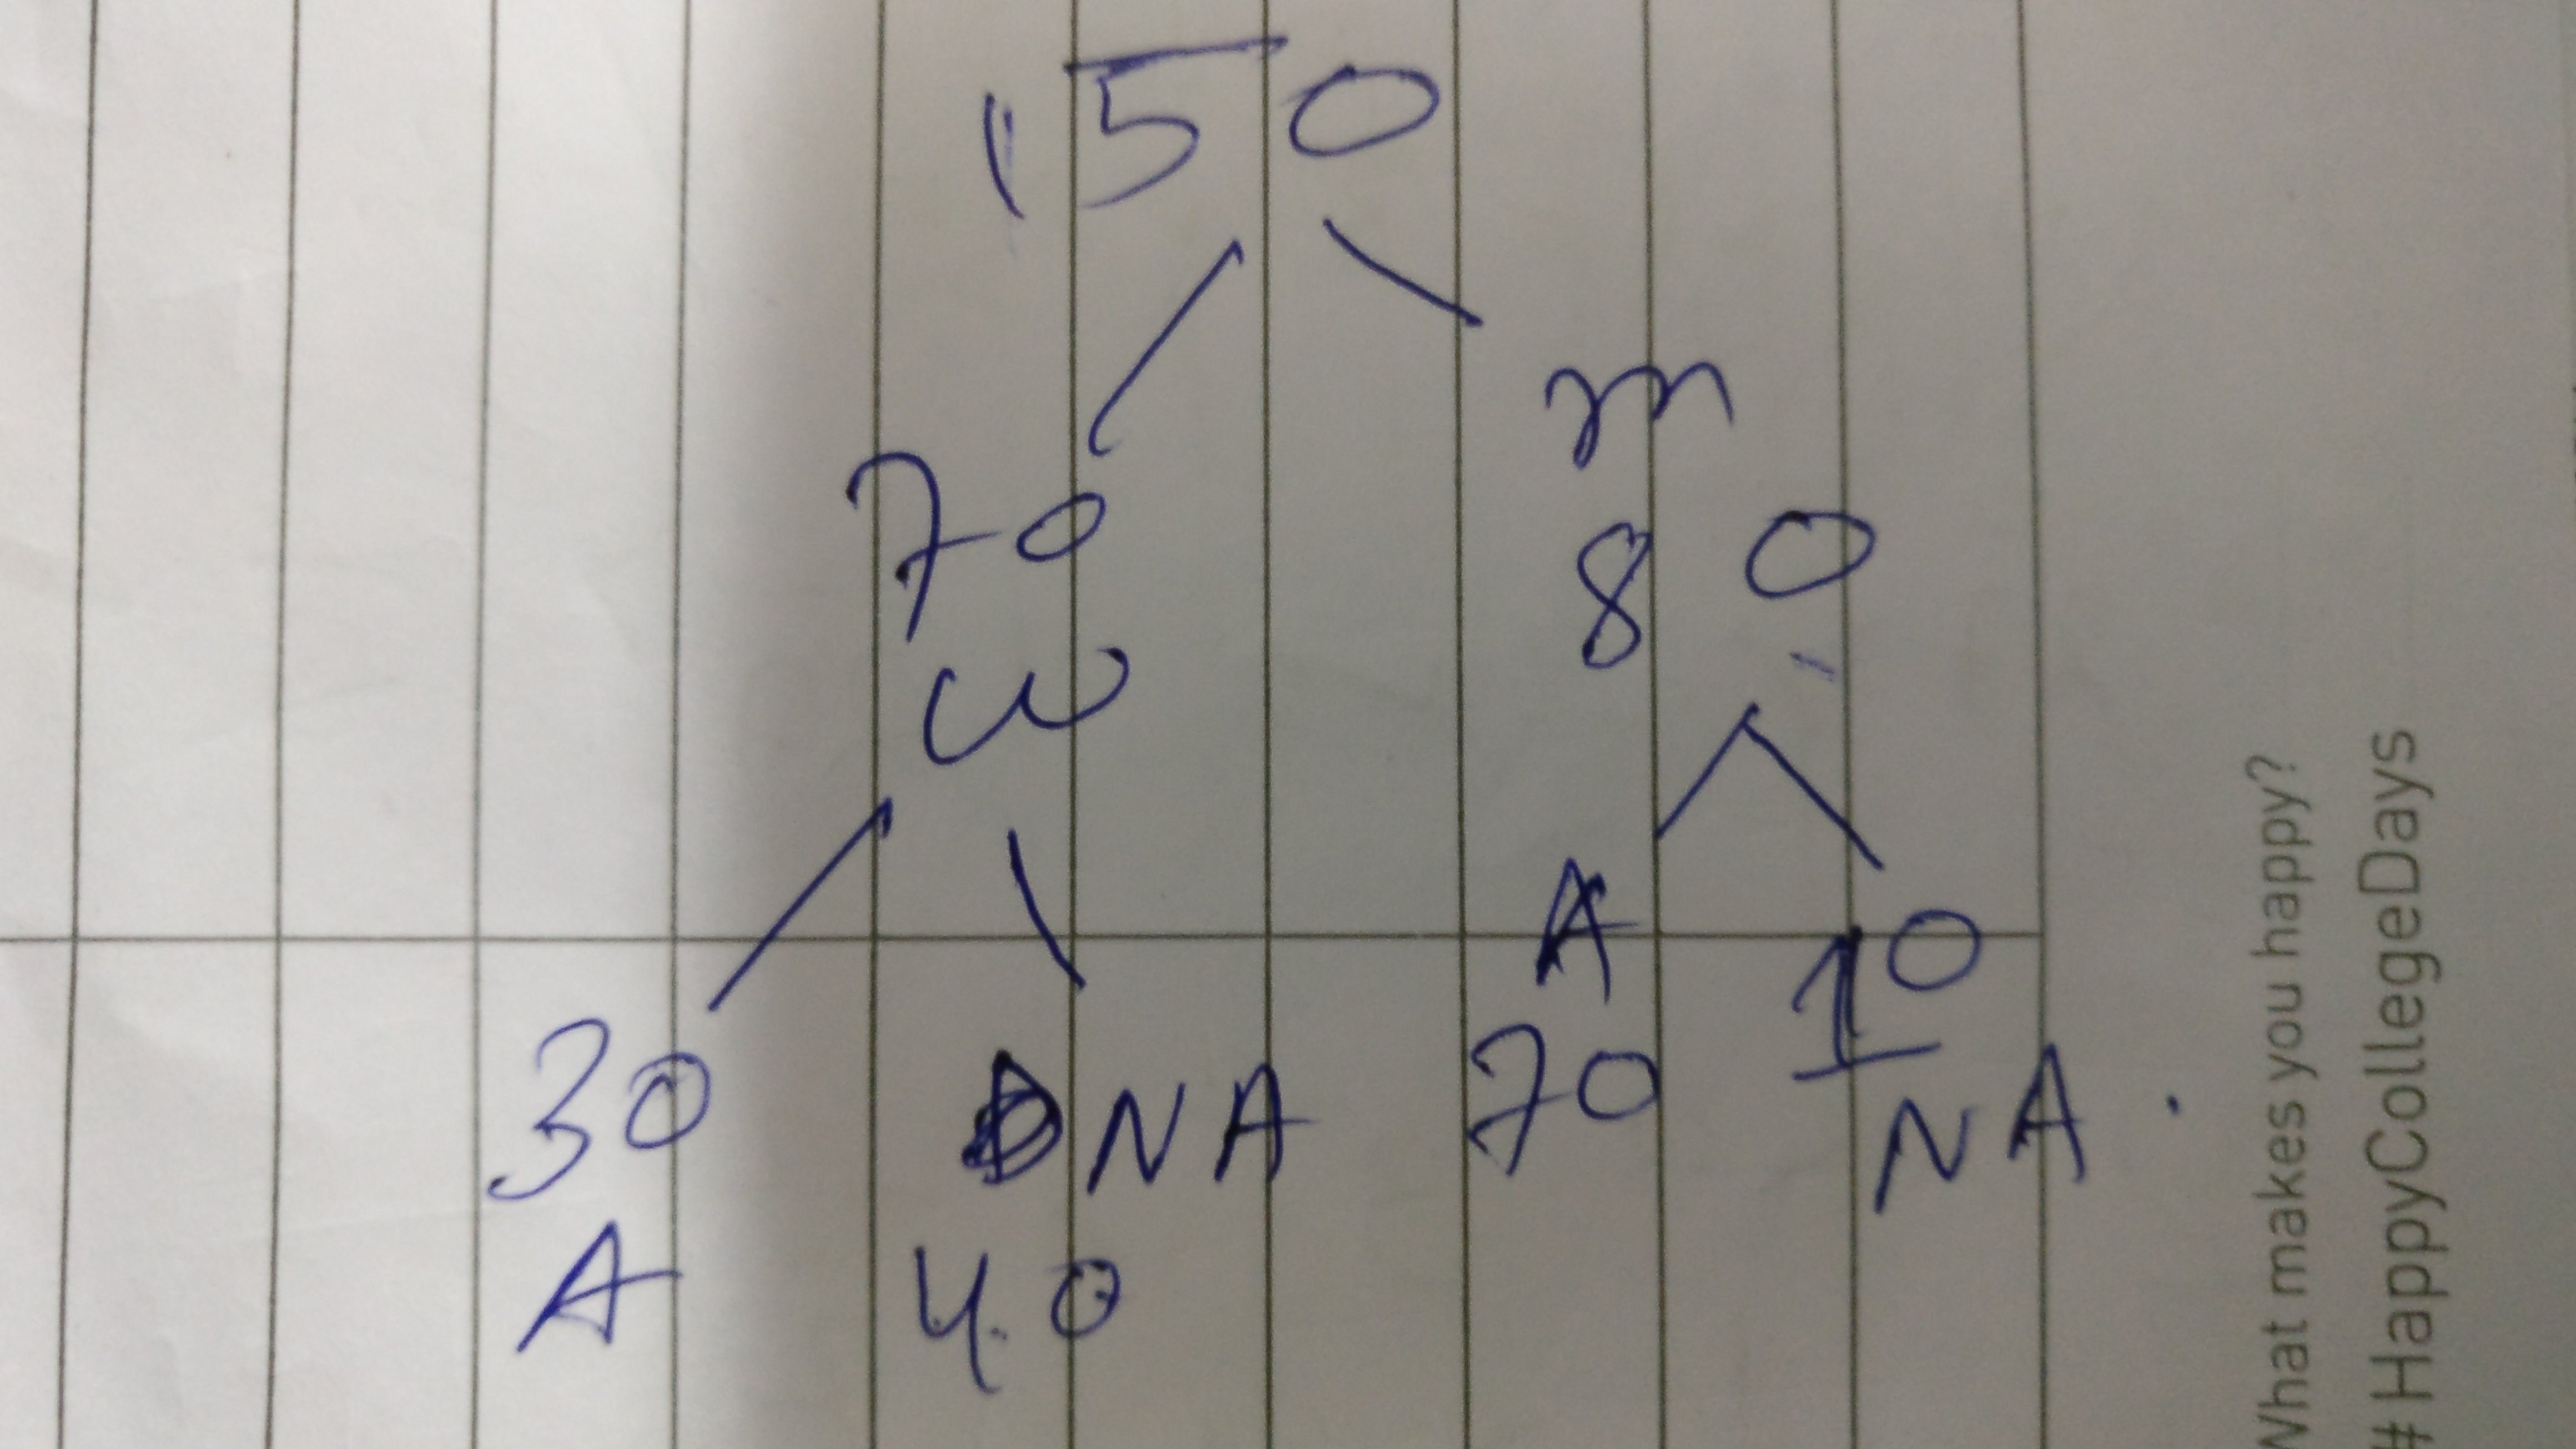 150
m
70
80
w
A
10
30
NA
70
NA.
A
40
What makes you happy?
#HappyCollegeDays